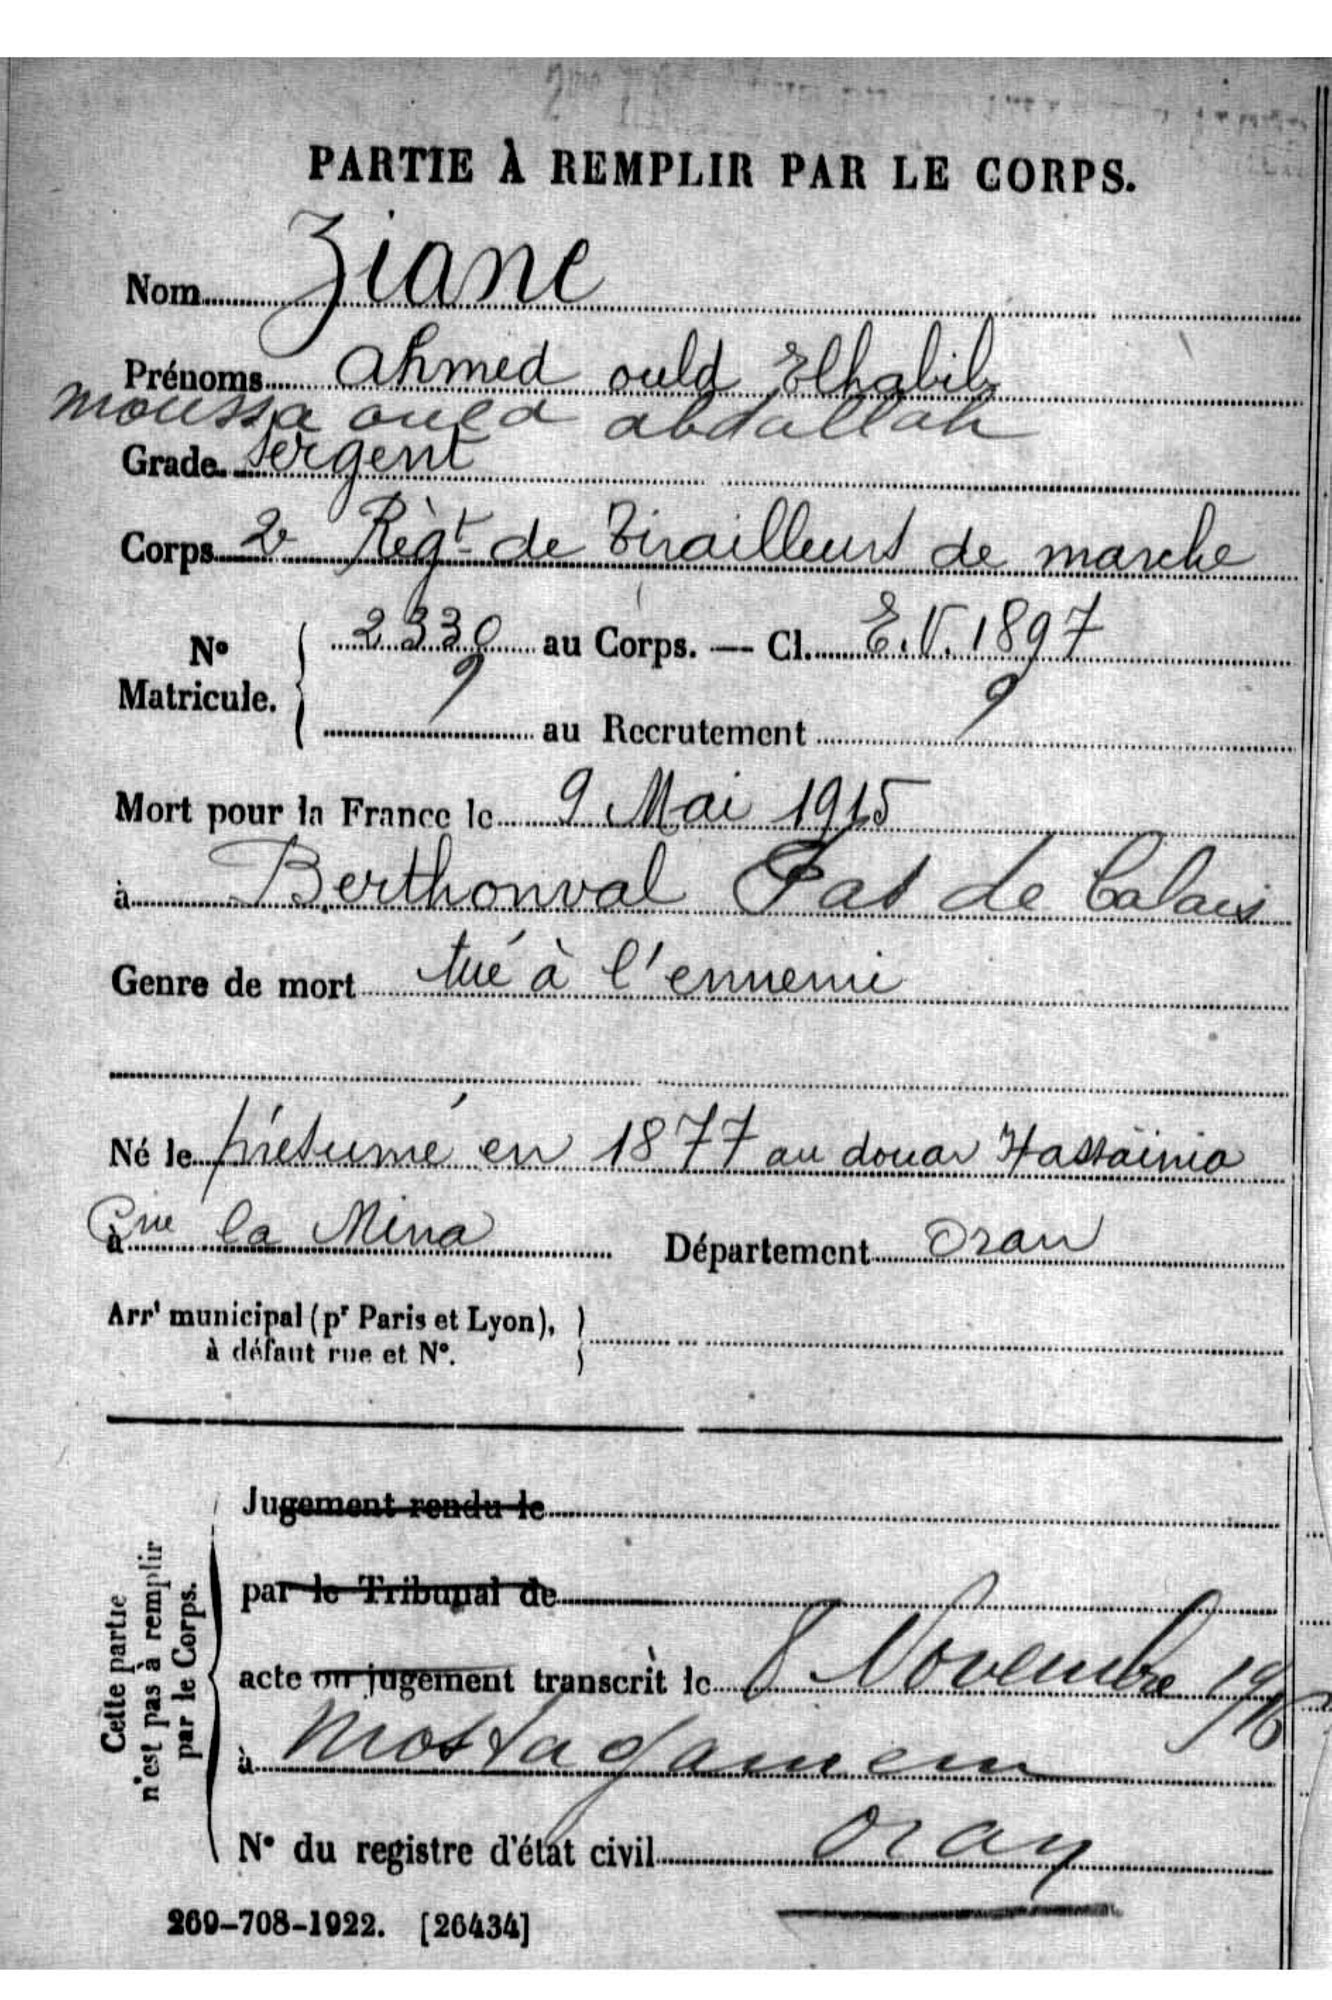 PARTIE À REMPLIR PAR LE CORPS.
Nom Ziane
Prénoms ahmed ould Elhabib
moussa ould abdallah
Grade Sergent
Corps 2e Règt de Tirailleurs de marche
No Matricule. { 2330 au Corps. — Cl. E.V. 1897
9 au Recrutement 9
Mort pour la France le 9 Mai 1915
à Berthonval Pas de Calais
Genre de mort tué à l'ennemi
Né le présumé en 1877 au douar Hassaïnia
à Cne la Mina Département Oran
Arrt municipal (pr Paris et Lyon), }
à défaut rue et No.
Cette partie
n'est pas à remplir
par le Corps.
Jugement rendu le
par le Tribunal de
acte ou jugement transcrit le 8 Novembre 1916
à Mostaganem
No du registre d'état civil Oran
269-708-1922. [26434]